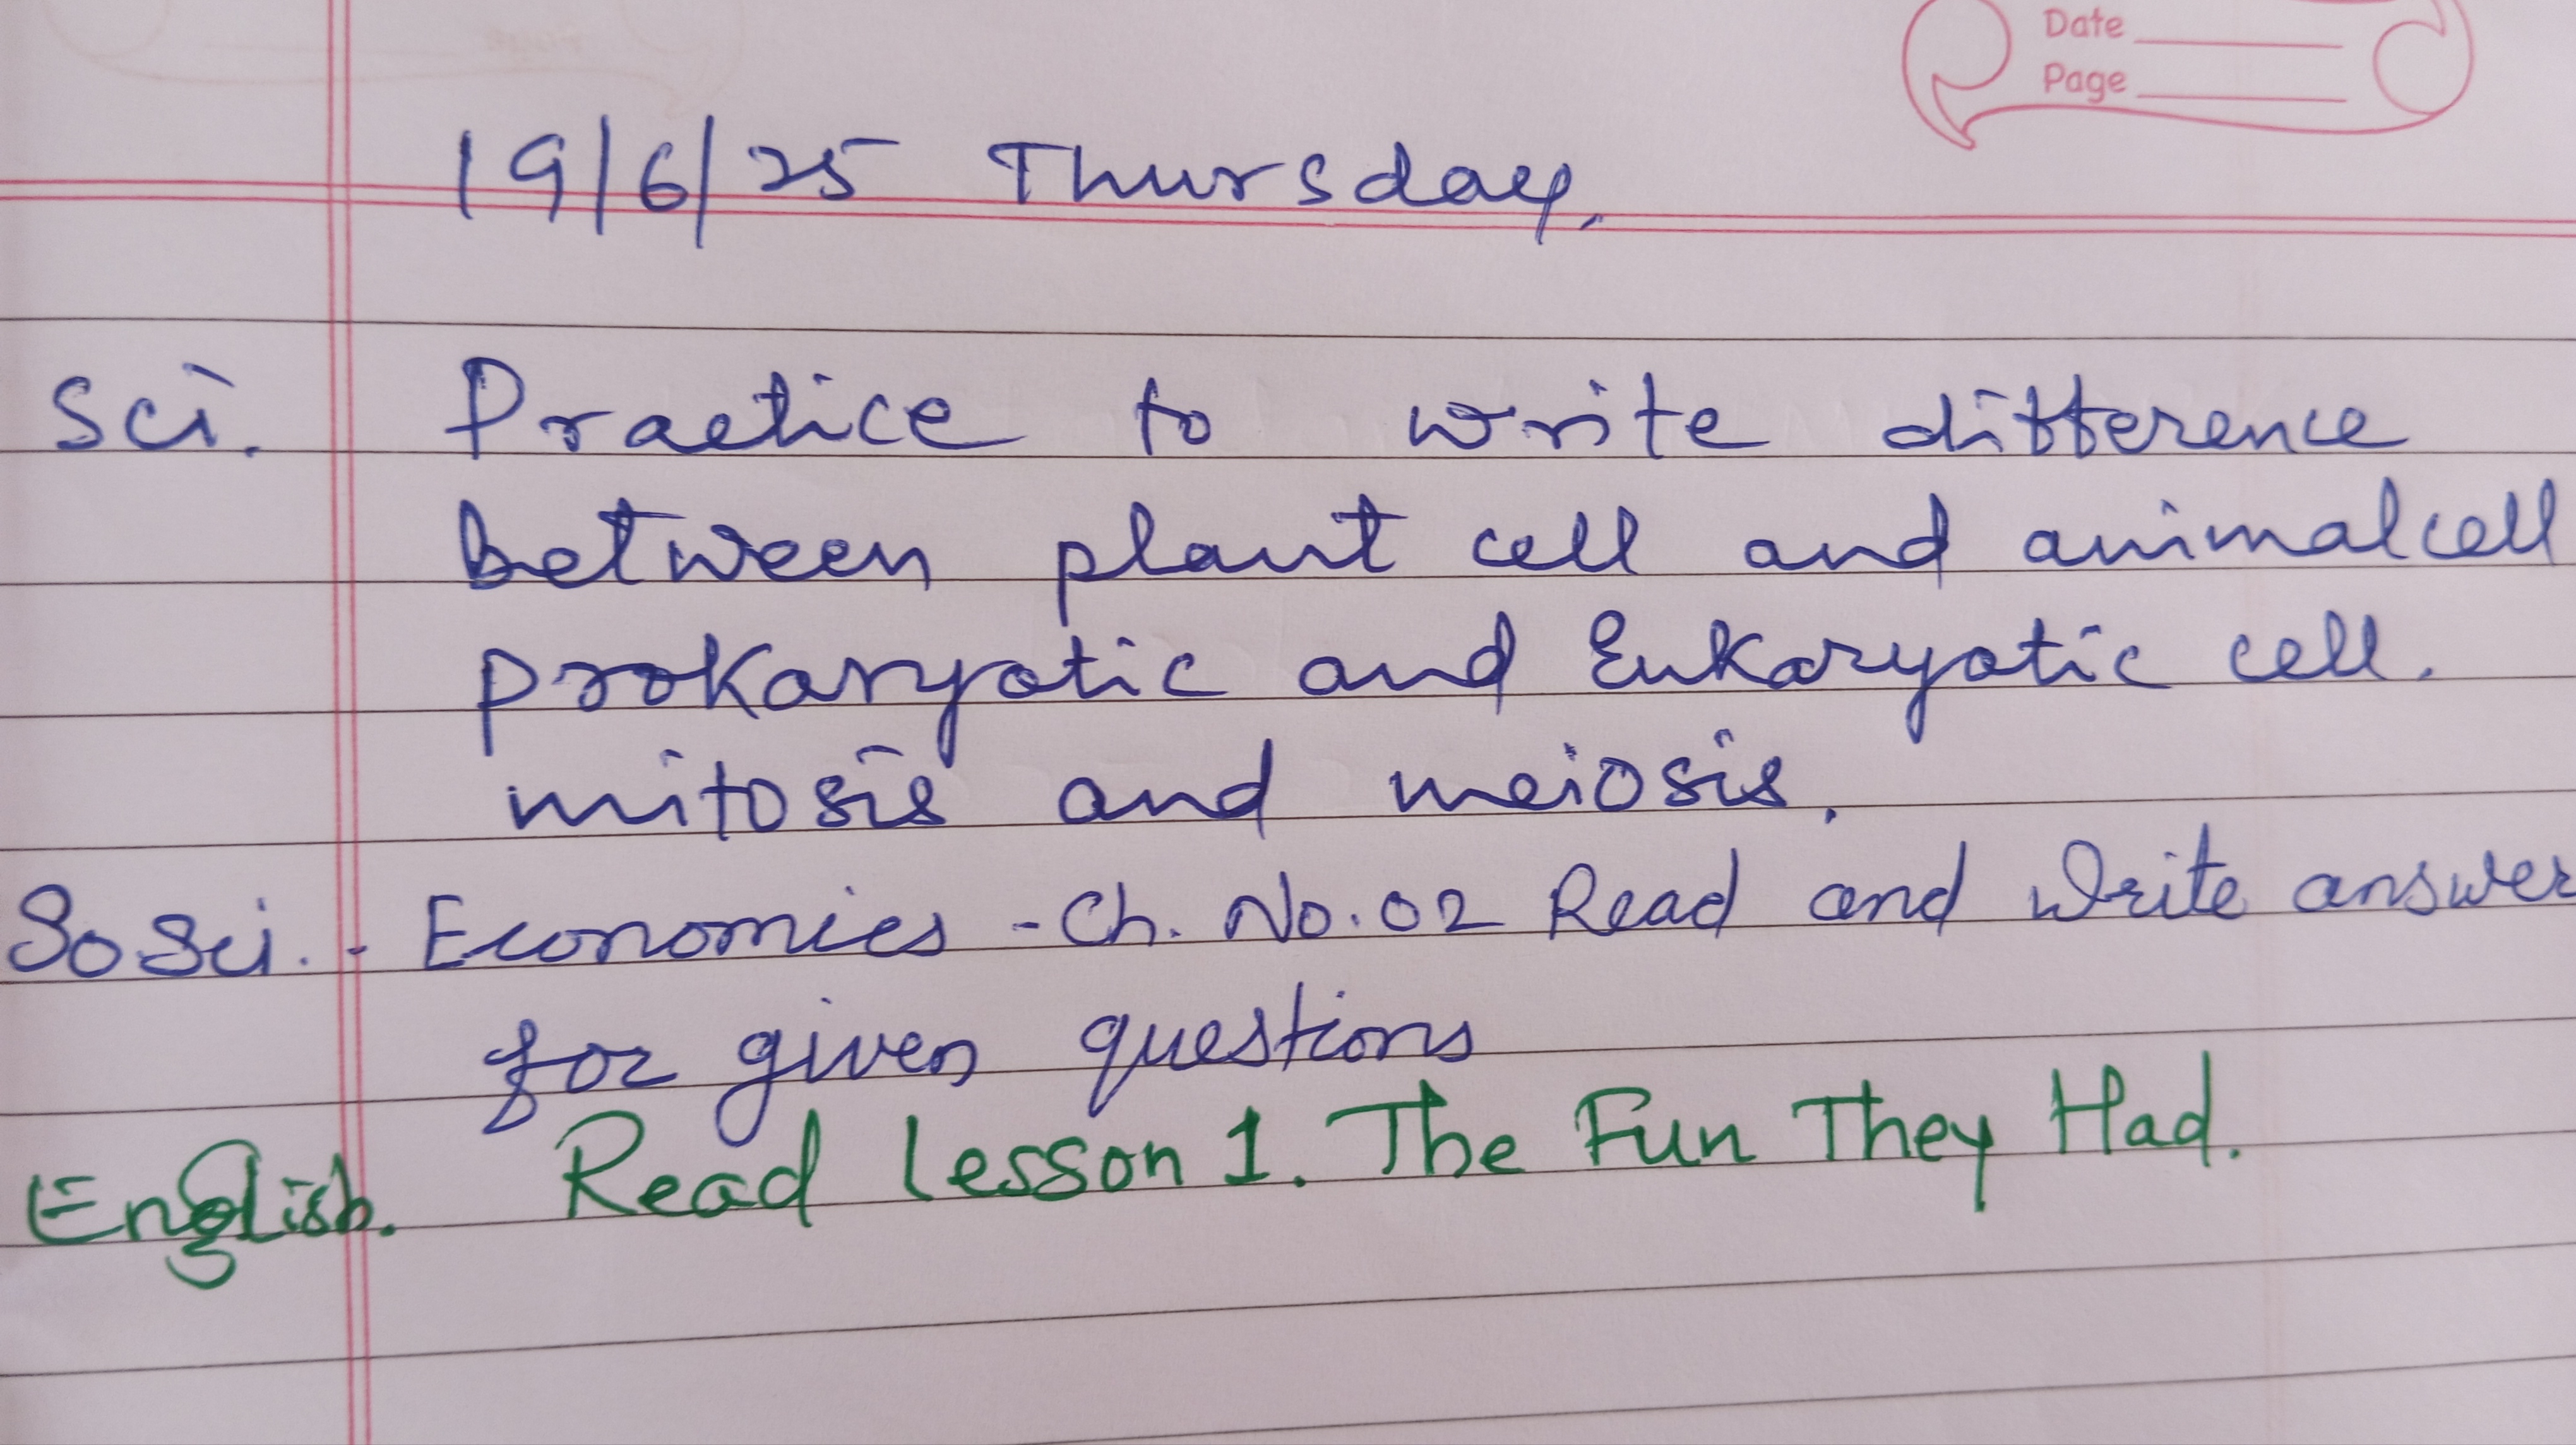 Date
Page
19/6/25 Thursday.
Sci. Practice to write difference
between plant cell and animal cell
prokaryotic and Eukaryotic cell.
mitosis and meiosis.
So Sci. - Economics - Ch. No. 02 Read and Write answer
for given questions
English. Read Lesson 1. The Fun They Had.